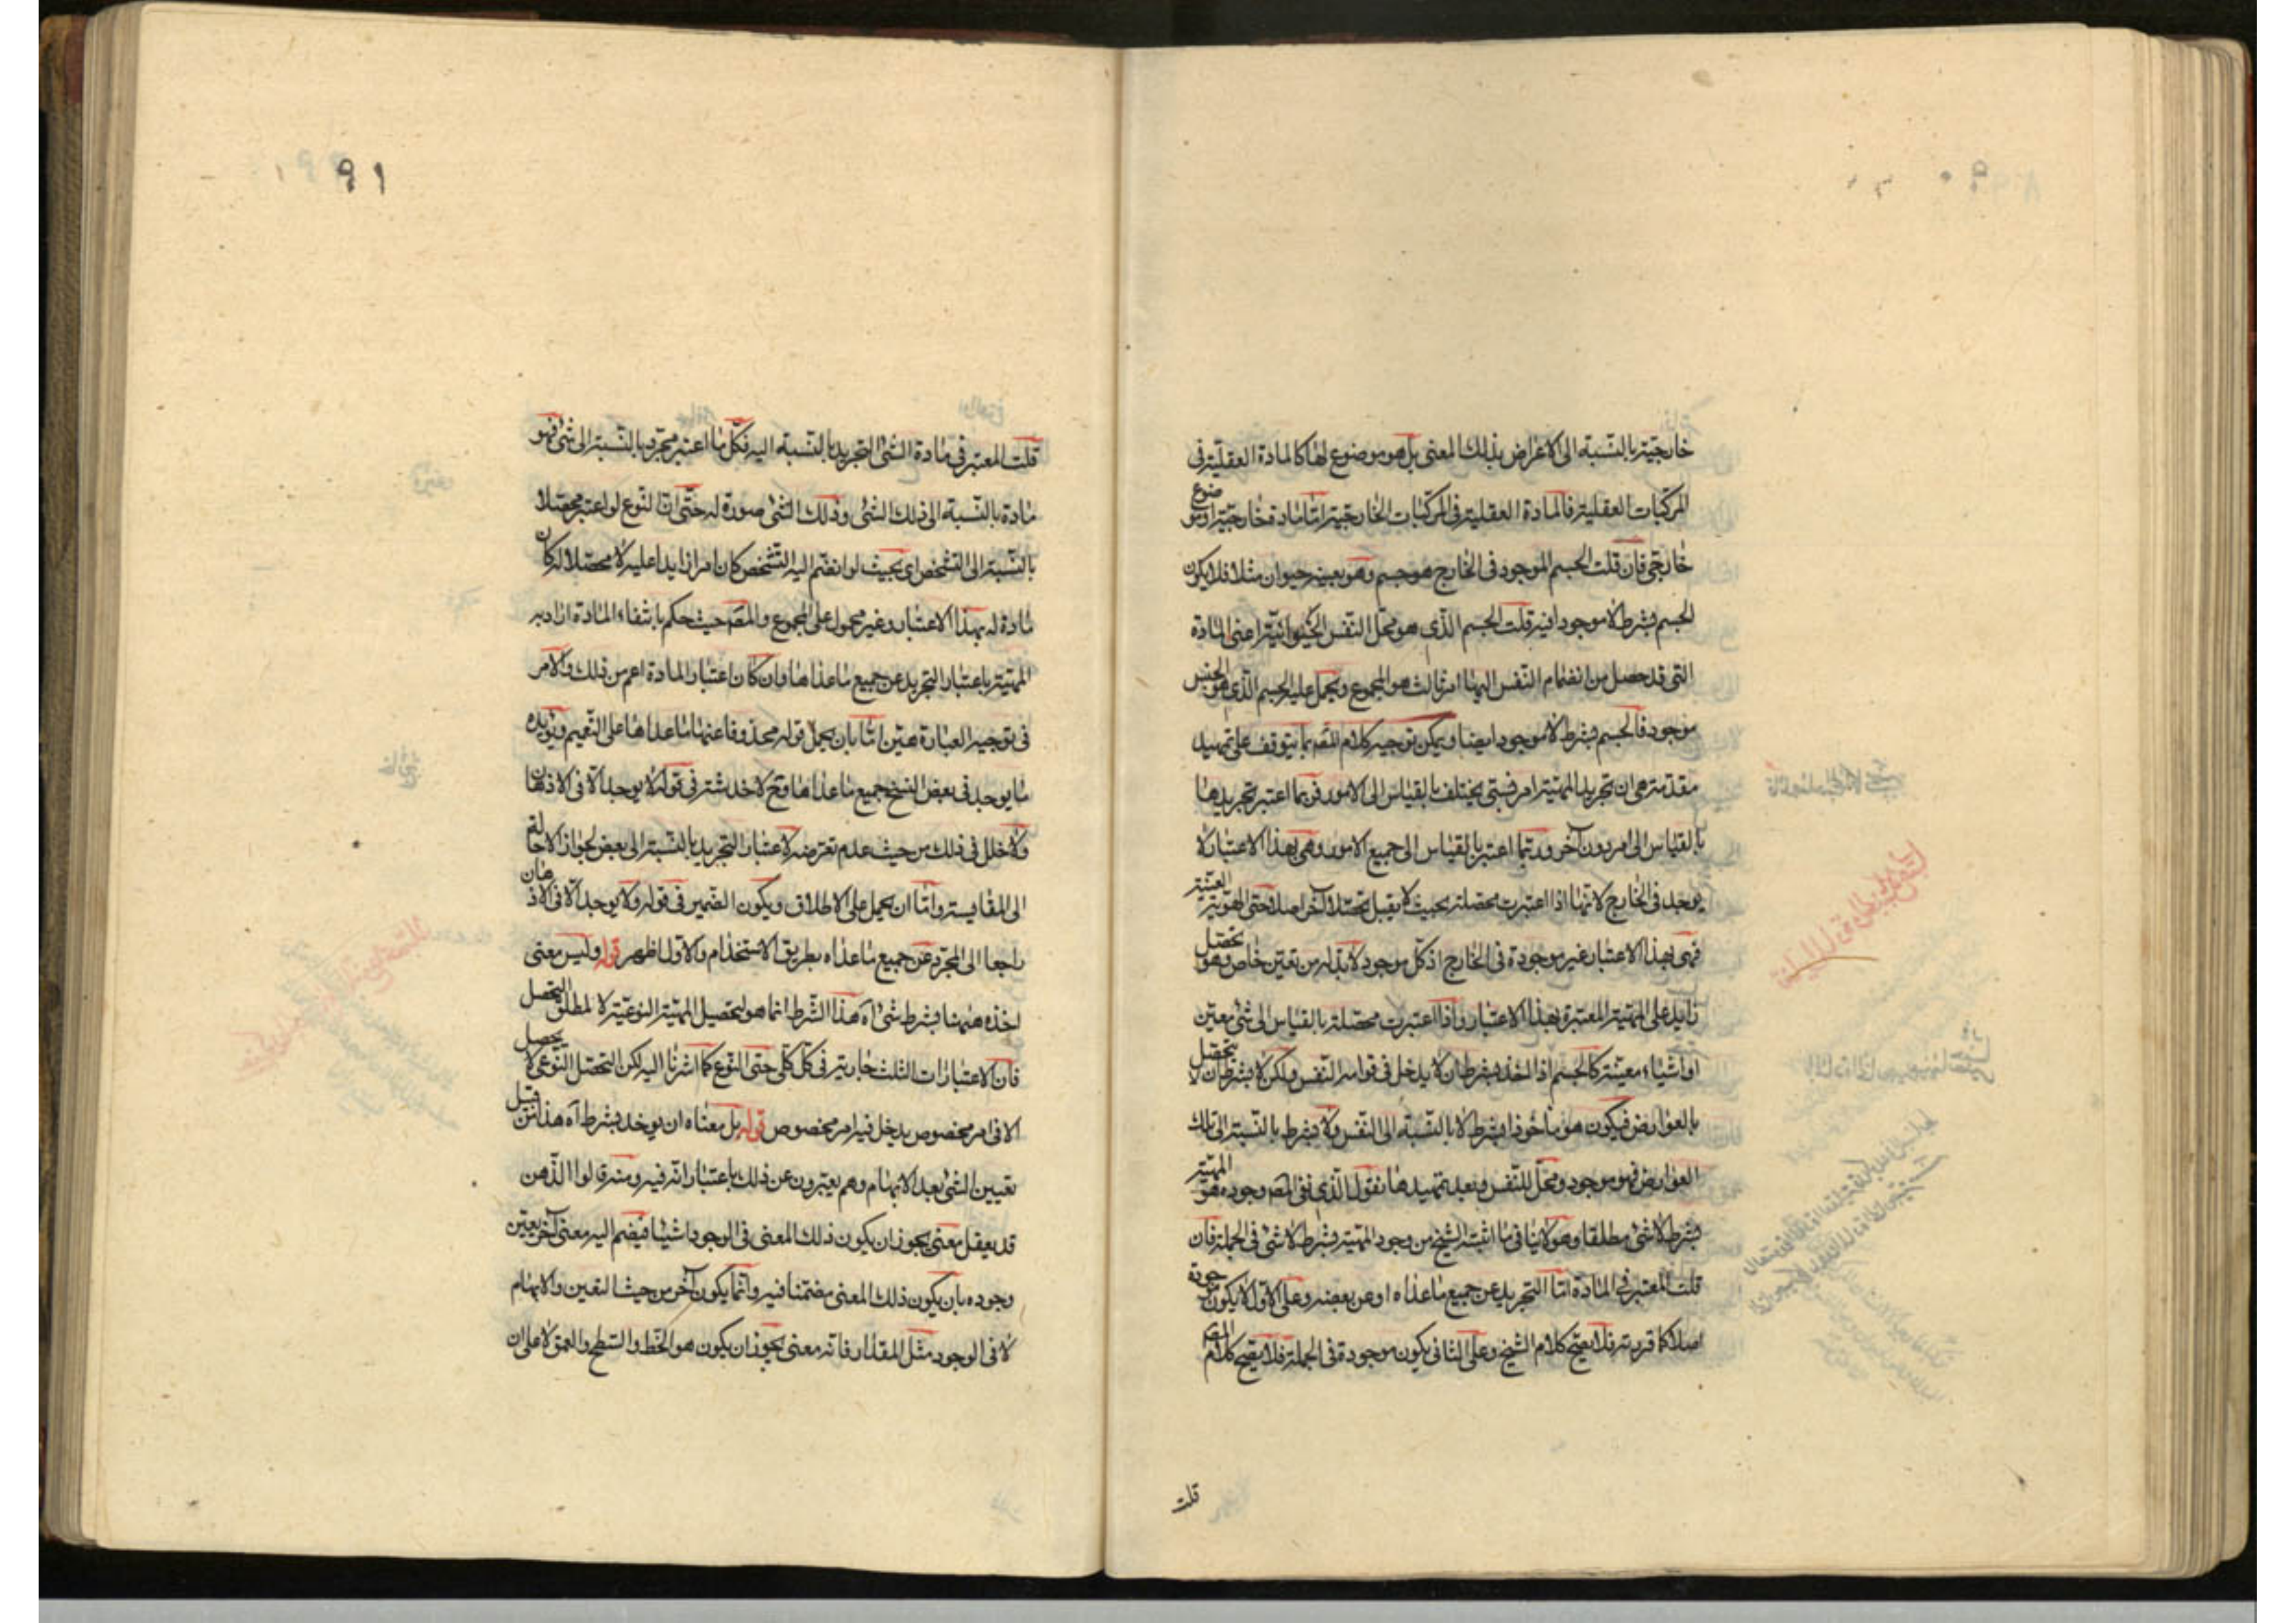 خارجيّة بالنّسبة الى الاعراض بذلك المعنى بل هو موضوع لها كالمادة العقليّة فى
المركّبات العقلية فالمادة العقلية فى المركبات الخارجية امّا مادة خارجية او موضوع
خارجى فان قلت الجسم الموجود فى الخارج هو جسم وهو بعينه حيوان مثلا فلا يكون
الجسم بشرط لا موجودا فيه قلت الجسم الذى هو محلّ النفس الحيوانيّة اعنى المادة
التى قد حصل من انضمام النّفس اليها امر ثالث هو المجموع ويحمل عليه الجسم الذى هو الجنس
موجود فالجسم بشرط لا موجود ايضا ويمكن توجيه كلام المص بما يتوقف على تمهيد
مقدمة هى ان تجريد المهيّة امر نسبى يختلف بالقياس الى الامور فربما اعتبر تجريدها
بالقياس الى امر دون آخر وربّما اعتبر بالقياس الى جميع الامور وهى بهذا الاعتبار لا
يوجد فى الخارج لانها اذا اعتبرت محصلة بحيث لا يقبل تحصّلا آخر اصلا حتى الهويّة العينيّة
فهى بهذا الاعتبار غير موجودة فى الخارج اذ كلّ موجود لابدّ له من تعيّن خاص وهو تحصّل
زايد على المهيّة المعتبرة بهذا الاعتبار واذا اعتبرت محصّلة بالقياس الى شئ معيّن
او اشياء معيّنة كالجسم اذا اخذ بشرط ان لا يدخل فى قوامه النّفس ولكن لا بشرط ان لا يتحصّل
بالعوارض فيكون هو مأخوذا بشرط لا بالنّسبة الى النّفس ولا بشرط بالنّسبة الى تلك
العوارض فهو موجود ومحلّ للنّفس وبعد تمهيدها نقول الّذى نفى المص وجوده هو المهيّة
بشرط لا شئ مطلقا وهو لا ينافى ما اثبته الشيخ من وجود المهيّة بشرط لا شئ فى الجملة فان
قلت المعتبر فى المادة امّا التّجريد عن جميع ماعداه او عن بعضه وعلى الاوّل لا يكون موجودة
اصلا كما قررته فلا يصحّ كلام الشيخ وعلى الثانى يكون موجودة فى الجملة فلا يصحّ كلام المص
قلت
٩١
قلت المعتبر فى مادة الشئ التجريد بالنّسبة اليه فكلّ ما اعتبر مجرّدا بالنّسبة الى شئ فهو
مادة بالنّسبة الى ذلك الشئ وذلك الشئ صورة له حتّى انّ النّوع لو اعتبر محصّلا
بالنّسبة الى التّشخص اى بحيث لو انضمّ اليه التّشخص كان امرا زايدا عليه لا محصّلا له كان
مادة له بهذا الاعتبار وغير محمول على المجموع والمص حيث حكم بانتفاء المادة اراد به
المهيّة باعتبار التجريد عن جميع ماعداها وان كان اعتبار المادة اعم من ذلك والامر
فى توجيه العبارة هيّن امّا بان يحمل قوله محذوفا عنها ماعداها على التّعميم ويؤيده
ما يوجد فى بعض النسخ جميع ماعداها وح لا خدشة فى قوله لا يوجد الا فى الاذهان
ولا خلل فى ذلك من حيث عدم تعرّضه لاعتبار التّجريد بالنّسبة الى بعض لجواز الاحالة
الى المقايسة وامّا ان يحمل على الاطلاق ويكون الضّمير فى قوله ولا يوجد الا فى الاذهان
راجعا الى المجرّد عن جميع ماعداه بطريق الاستخدام والاوّل اظهر قوله وليس معنى
اخذه ههنا بشرط شئ آه هذا الشّرط انما هو لتحصيل المهيّة النوعيّة لا لمطلق التحصل
فان الاعتبارات الثلث جارية فى كلّ كلّى حتى النّوع كما اشرنا اليه لكن التحصّل النّوعى لا يحصل
الا فى امر مخصوص يدخل فيه امر مخصوص قوله بل معناه ان يوخذ بشرط آه هذا من قبل
تعيين الشئ بعد الابهام وهم يعبّرون عن ذلك باعتبار انّه فيه ومنه قالوا الذّهن
قد يعقل معنى يجوز ان يكون ذلك المعنى فى الوجود اشياء فيضم اليه معنى آخر يعيّن
وجوده بان يكون ذلك المعنى مضمّنا فيه وانّما يكون آخر من حيث التعين والابهام
لا فى الوجود مثل المقدار فانّه معنى يجوز ان يكون هو الخطّ والسّطح والعمق لا على ان